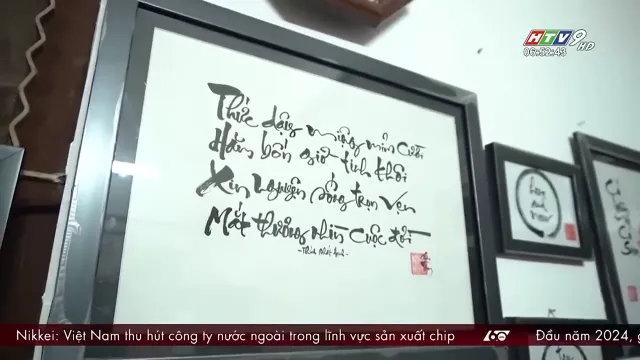 HTV9 HD
06:52:43
Thức dậy miệng mỉm cười
Hăm bốn giờ tinh khôi
Xin nguyện sống trọn vẹn
Mắt thương nhìn cuộc đời
- Thích Nhất Hạnh -
Nikkei: Việt Nam thu hút công ty nước ngoài trong lĩnh vực sản xuất chip
60
Đầu năm 2024,